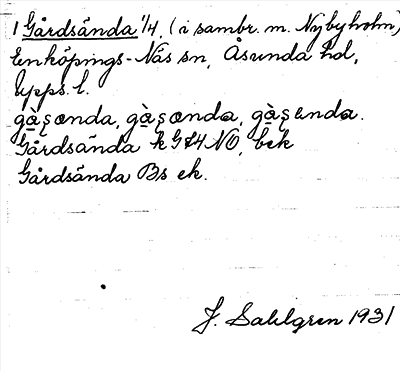 1 Gårdsända 1/4, (i sambr. m. Nybyholm)
Enköpings-Näs sn, Åsunda hd,
Upps. l.
gà̱ʂænda, gà̱ʂænda, gà̱ʂɛnda.
Gårdsända k GS4 NO, bek
Gårdsända Bs ek.
J. Sahlgren 1931